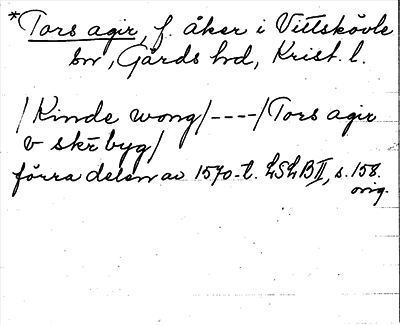 *Tors agir, f. åker i Vittskövle
sn, Gärds hd, Krist. l.
/Kinde wong/----/Tors agir
v skr byg/
förra delen av 1570-t. LSLB II, s. 158.
orig.